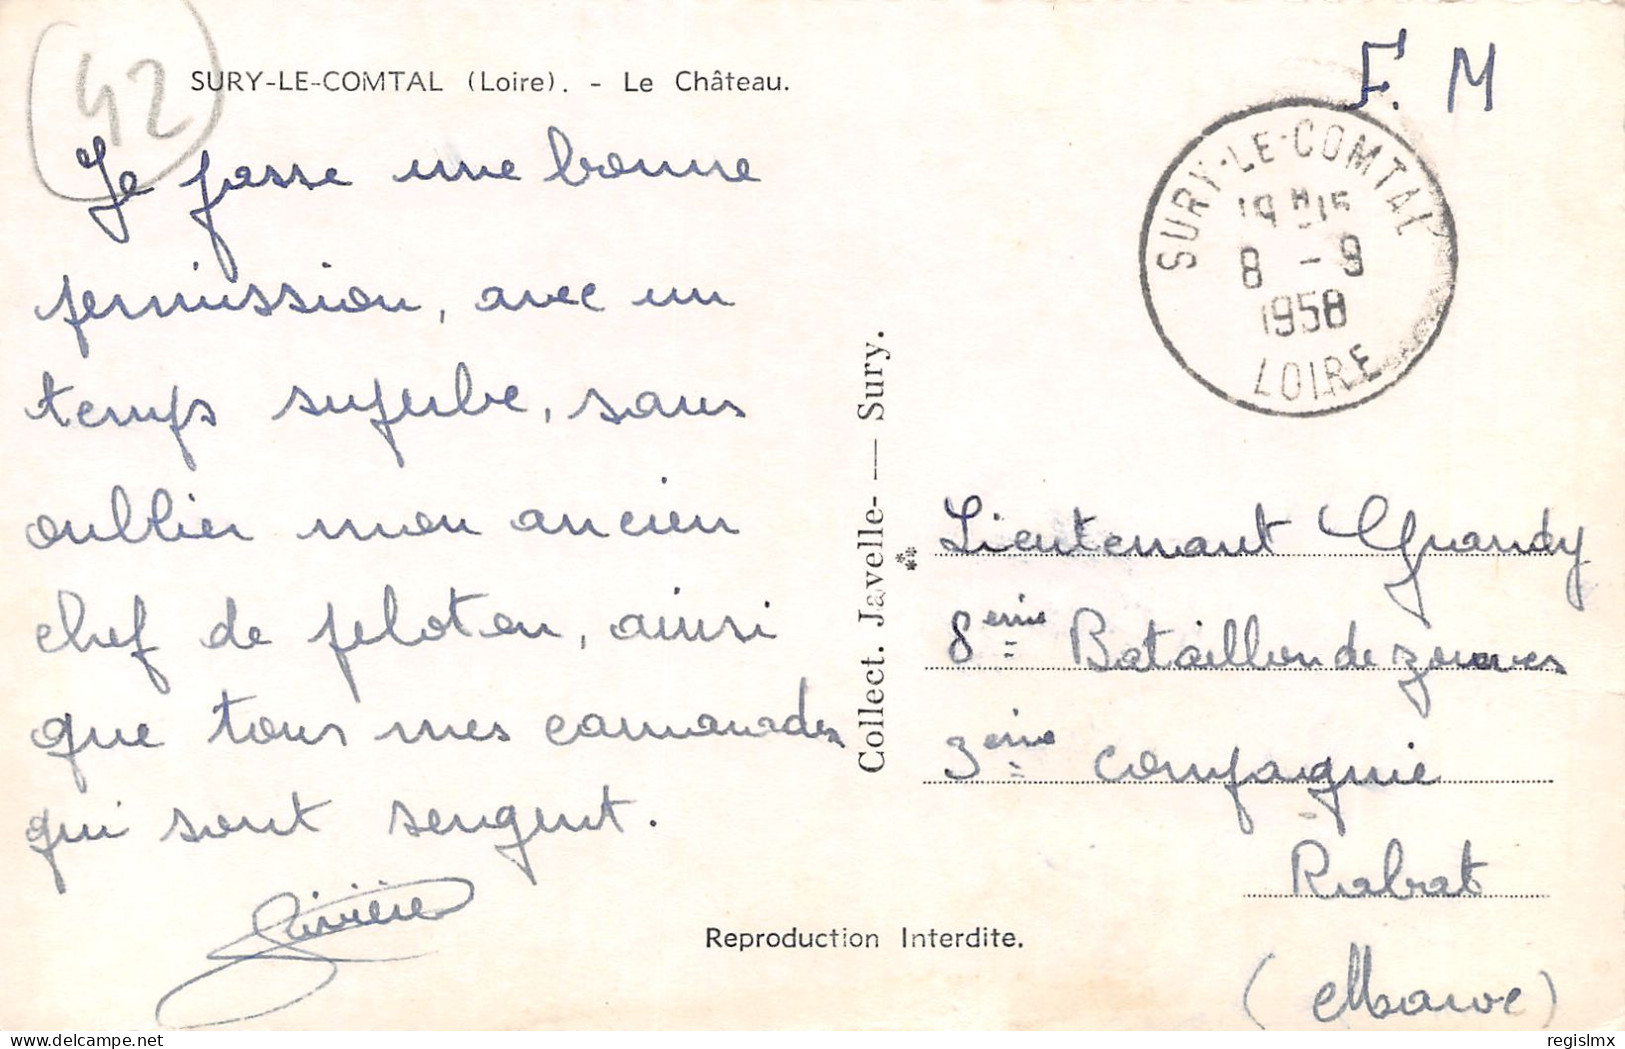 42
SURY-LE-COMTAL (Loire). - Le Château.
Je passe une bonne
permission, avec un
temps superbe, sans
oublier mon ancien
chef de peloton, ainsi
que tous mes camarades
qui sont sergent.
Rivière
F. M
SURY-LE-COMTAL
8 - 9
1958
LOIRE
Collect. Javelle- — Sury.
Lieutenant Grandy
8ème Bataillon de zouaves
3ème compagnie
Rabat
(Maroc)
Reproduction Interdite.
regislmx